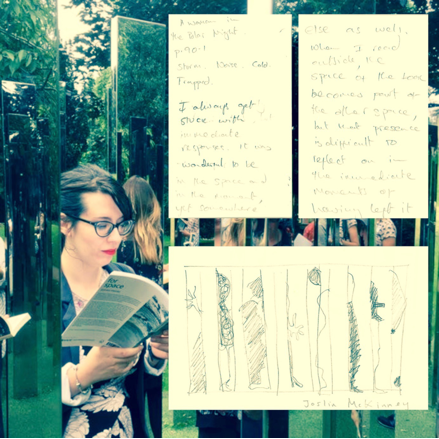 A woman in
the Polar Night
p.90-1
Storm. Noise. Cold.
Trapped.
I always get
stuck with
immediate
responses. It was
wonderful to be
in the space and
in the
yet somewhere
else as well.
When I read
outside, the
space of the
becomes part of
the other space,
but that presence
is difficult to
reflect on in
the immediate
moments of
having left it
for
space
Joslin McKinney